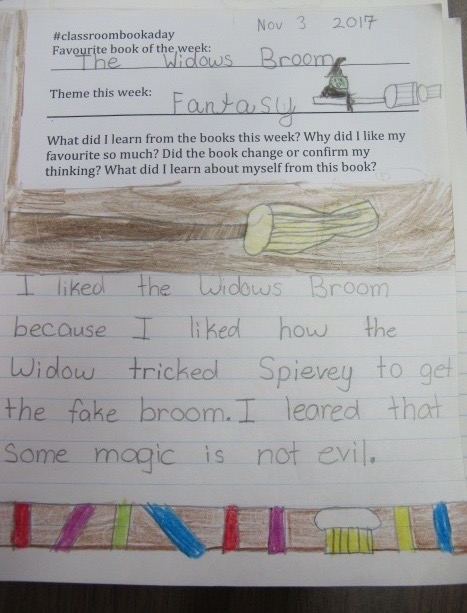 Nov 3 2017
#classroombookaday
Favourite book of the week:
The Widows Broom
Theme this week:
Fantasly
What did I learn from the books this week? Why did I like my
favourite so much? Did the book change or confirm my
thinking? What did I learn about myself from this book?
I liked the Widows Broom
because I liked how the
Widow tricked Spievey to get
the fake broom. I leared that
Some magic is not evil.